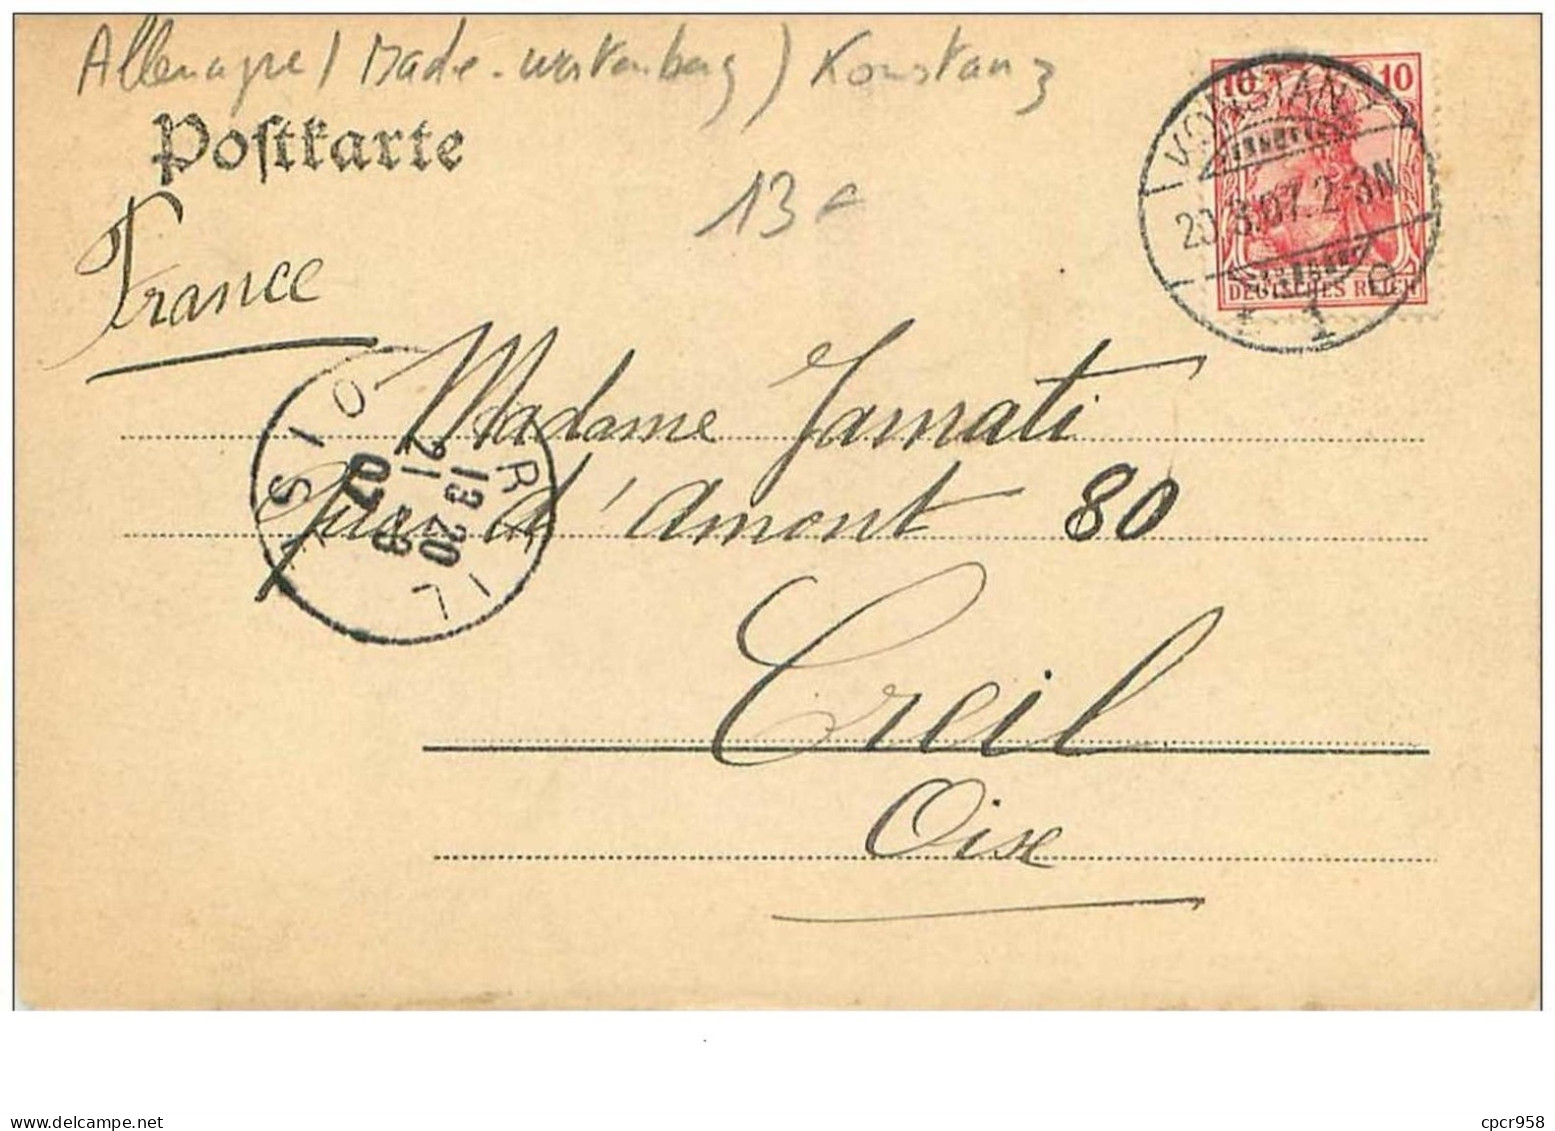 Allemagne / Bade-Wurtemberg) Konstanz
Postkarte
13 €
France
10 10
KONSTANZ
20.3.07.2-3N
DEUTSCHES REICH
* 1 c
Madame Jamati
Quai d'Amont 80
Creil
Oise
CREIL
13 20
21 - 3
07
OISE
www.delcampe.net
cpcr958